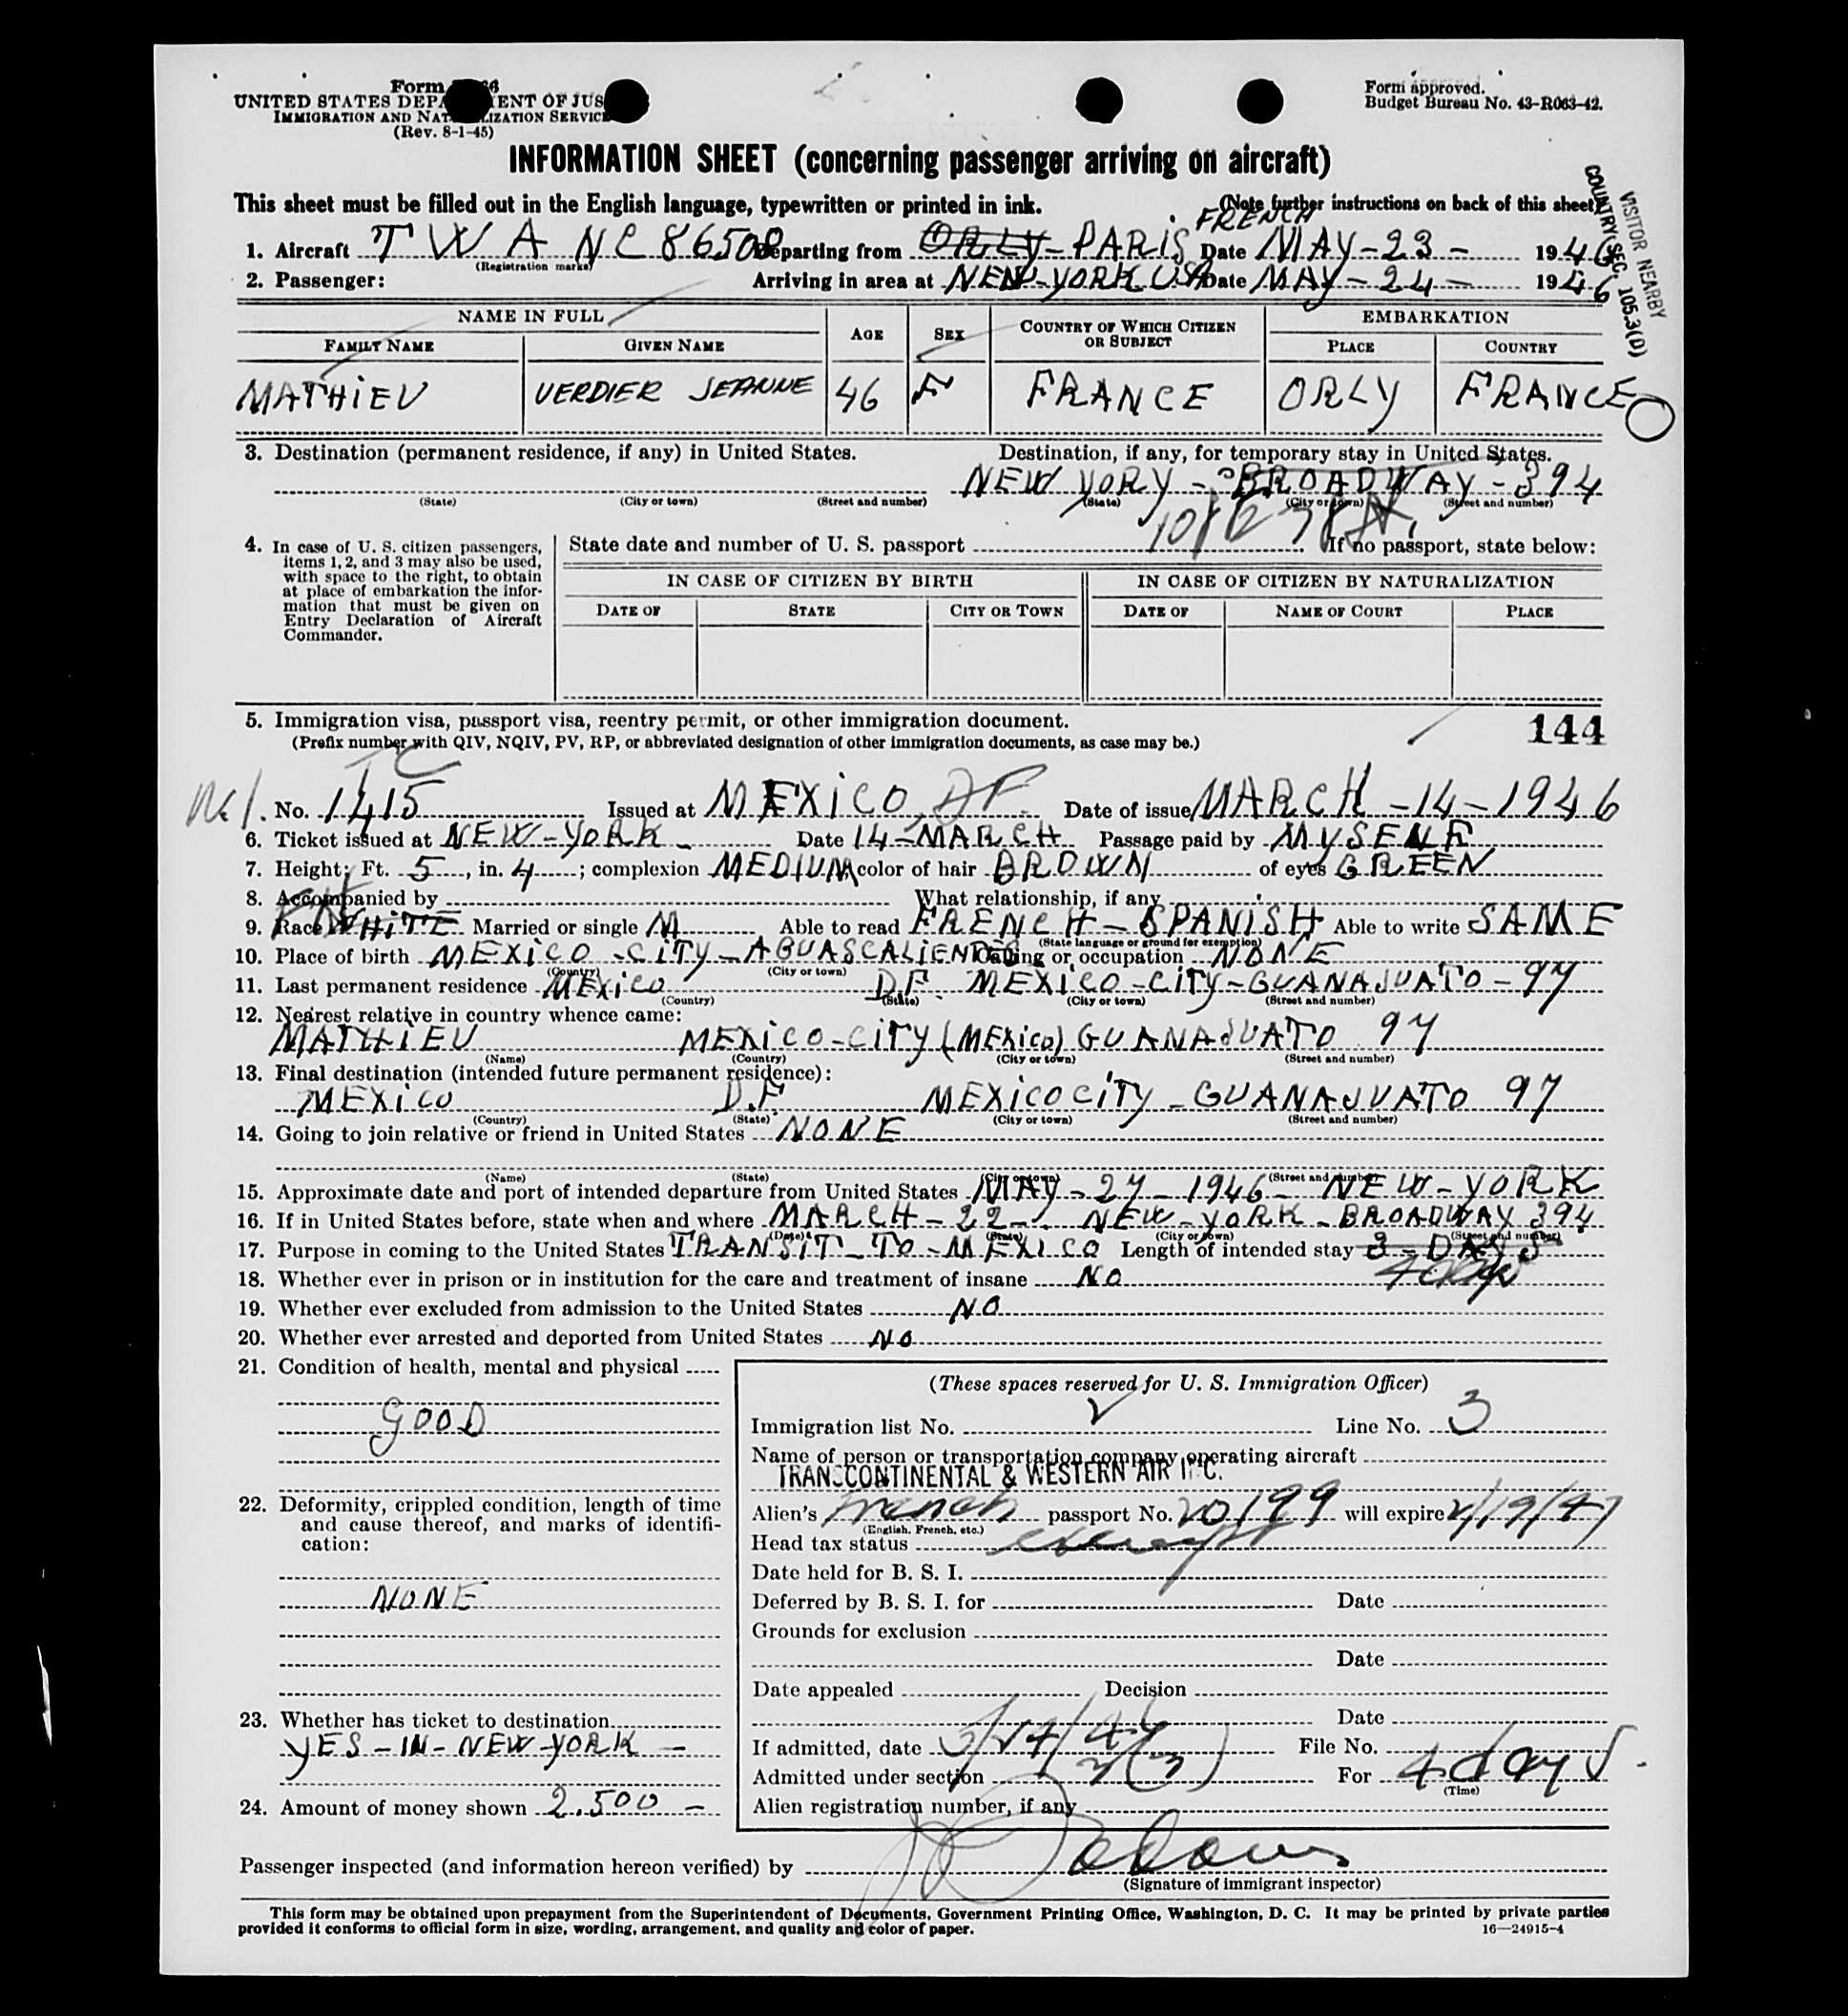 Form
UNITED STATES DEPA ENT OF JUS
IMMIGRATION AND NAT IZATION SERVICE
(Rev. 8-1-45)
Form approved.
Budget Bureau No. 43-R063-42.
INFORMATION SHEET (concerning passenger arriving on aircraft)
This sheet must be filled out in the English language, typewritten or printed in ink. (Note further instructions on back of this sheet)
VISITOR NEARBY
COUNTRY SEC. 105.3(D)
FRENCH
1. Aircraft TWA NC 86508 Departing from ORLY-PARIS Date MAY-23- 1946
(Registration marks)
2. Passenger: Arriving in area at NEW-YORK USA Date MAY-24- 1946
NAME IN FULL AGE SEX COUNTRY OF WHICH CITIZEN OR SUBJECT EMBARKATION
FAMILY NAME GIVEN NAME PLACE COUNTRY
MATHIEU VERDIER JEANNE 46 F FRANCE ORLY FRANCE
3. Destination (permanent residence, if any) in United States. Destination, if any, for temporary stay in United States.
NEW YORY - BROADWAY - 394
(State) (City or town) (Street and number) (State) (City or town) (Street and number)
4. In case of U. S. citizen passengers, items 1, 2, and 3 may also be used, with space to the right, to obtain at place of embarkation the information that must be given on Entry Declaration of Aircraft Commander.
State date and number of U. S. passport If no passport, state below:
IN CASE OF CITIZEN BY BIRTH IN CASE OF CITIZEN BY NATURALIZATION
DATE OF STATE CITY OR TOWN DATE OF NAME OF COURT PLACE
5. Immigration visa, passport visa, reentry permit, or other immigration document. 144
(Prefix number with QIV, NQIV, PV, RP, or abbreviated designation of other immigration documents, as case may be.)
TC
No. 1415 Issued at MEXICO, DF Date of issue MARCH-14-1946
6. Ticket issued at NEW-YORK - Date 14-MARCH Passage paid by MYSELF
7. Height: Ft. 5, in. 4; complexion MEDIUM color of hair BROWN of eyes GREEN
8. Accompanied by What relationship, if any
9. Race WHITE Married or single M Able to read FRENCH - SPANISH Able to write SAME
(State language or ground for exemption)
10. Place of birth MEXICO - CITY - AGUASCALIENTES Calling or occupation NONE
(Country) (City or town)
11. Last permanent residence MEXICO D.F. MEXICO-CITY-GUANAJUATO-97
(Country) (State) (City or town) (Street and number)
12. Nearest relative in country whence came:
MATHIEU MEXICO-CITY (MEXICO) GUANAJUATO 97
(Name) (Country) (City or town) (Street and number)
13. Final destination (intended future permanent residence):
MEXICO D.F MEXICO CITY - GUANAJUATO 97
(Country) (State) (City or town) (Street and number)
14. Going to join relative or friend in United States NONE
(Name) (State) (City or town) (Street and number)
15. Approximate date and port of intended departure from United States MAY-27-1946- NEW-YORK
16. If in United States before, state when and where MARCH-22-. NEW-YORK-BROADWAY 394
(Date) (State) (City or town) (Street and number)
17. Purpose in coming to the United States TRANSIT-TO-MEXICO Length of intended stay 3-DAYS
4 days
18. Whether ever in prison or in institution for the care and treatment of insane NO
19. Whether ever excluded from admission to the United States NO
20. Whether ever arrested and deported from United States NO
21. Condition of health, mental and physical
GOOD
22. Deformity, crippled condition, length of time and cause thereof, and marks of identification:
NONE
23. Whether has ticket to destination
YES-IN-NEW-YORK-
24. Amount of money shown 2.500 -
(These spaces reserved for U. S. Immigration Officer)
Immigration list No. Line No. 3
Name of person or transportation company operating aircraft
TRANSCONTINENTAL & WESTERN AIR INC.
Alien's French passport No. 20199 will expire 2/19/47
(English, French, etc.)
Head tax status exempt
Date held for B. S. I.
Deferred by B. S. I. for Date
Grounds for exclusion
Date
Date appealed Decision
Date
If admitted, date 5/24/46 File No.
Admitted under section 3(3) For 4 days
(Time)
Alien registration number, if any
Passenger inspected (and information hereon verified) by
(Signature of immigrant inspector)
This form may be obtained upon prepayment from the Superintendent of Documents, Government Printing Office, Washington, D. C. It may be printed by private parties
provided it conforms to official form in size, wording, arrangement, and quality and color of paper. 16—24915-4